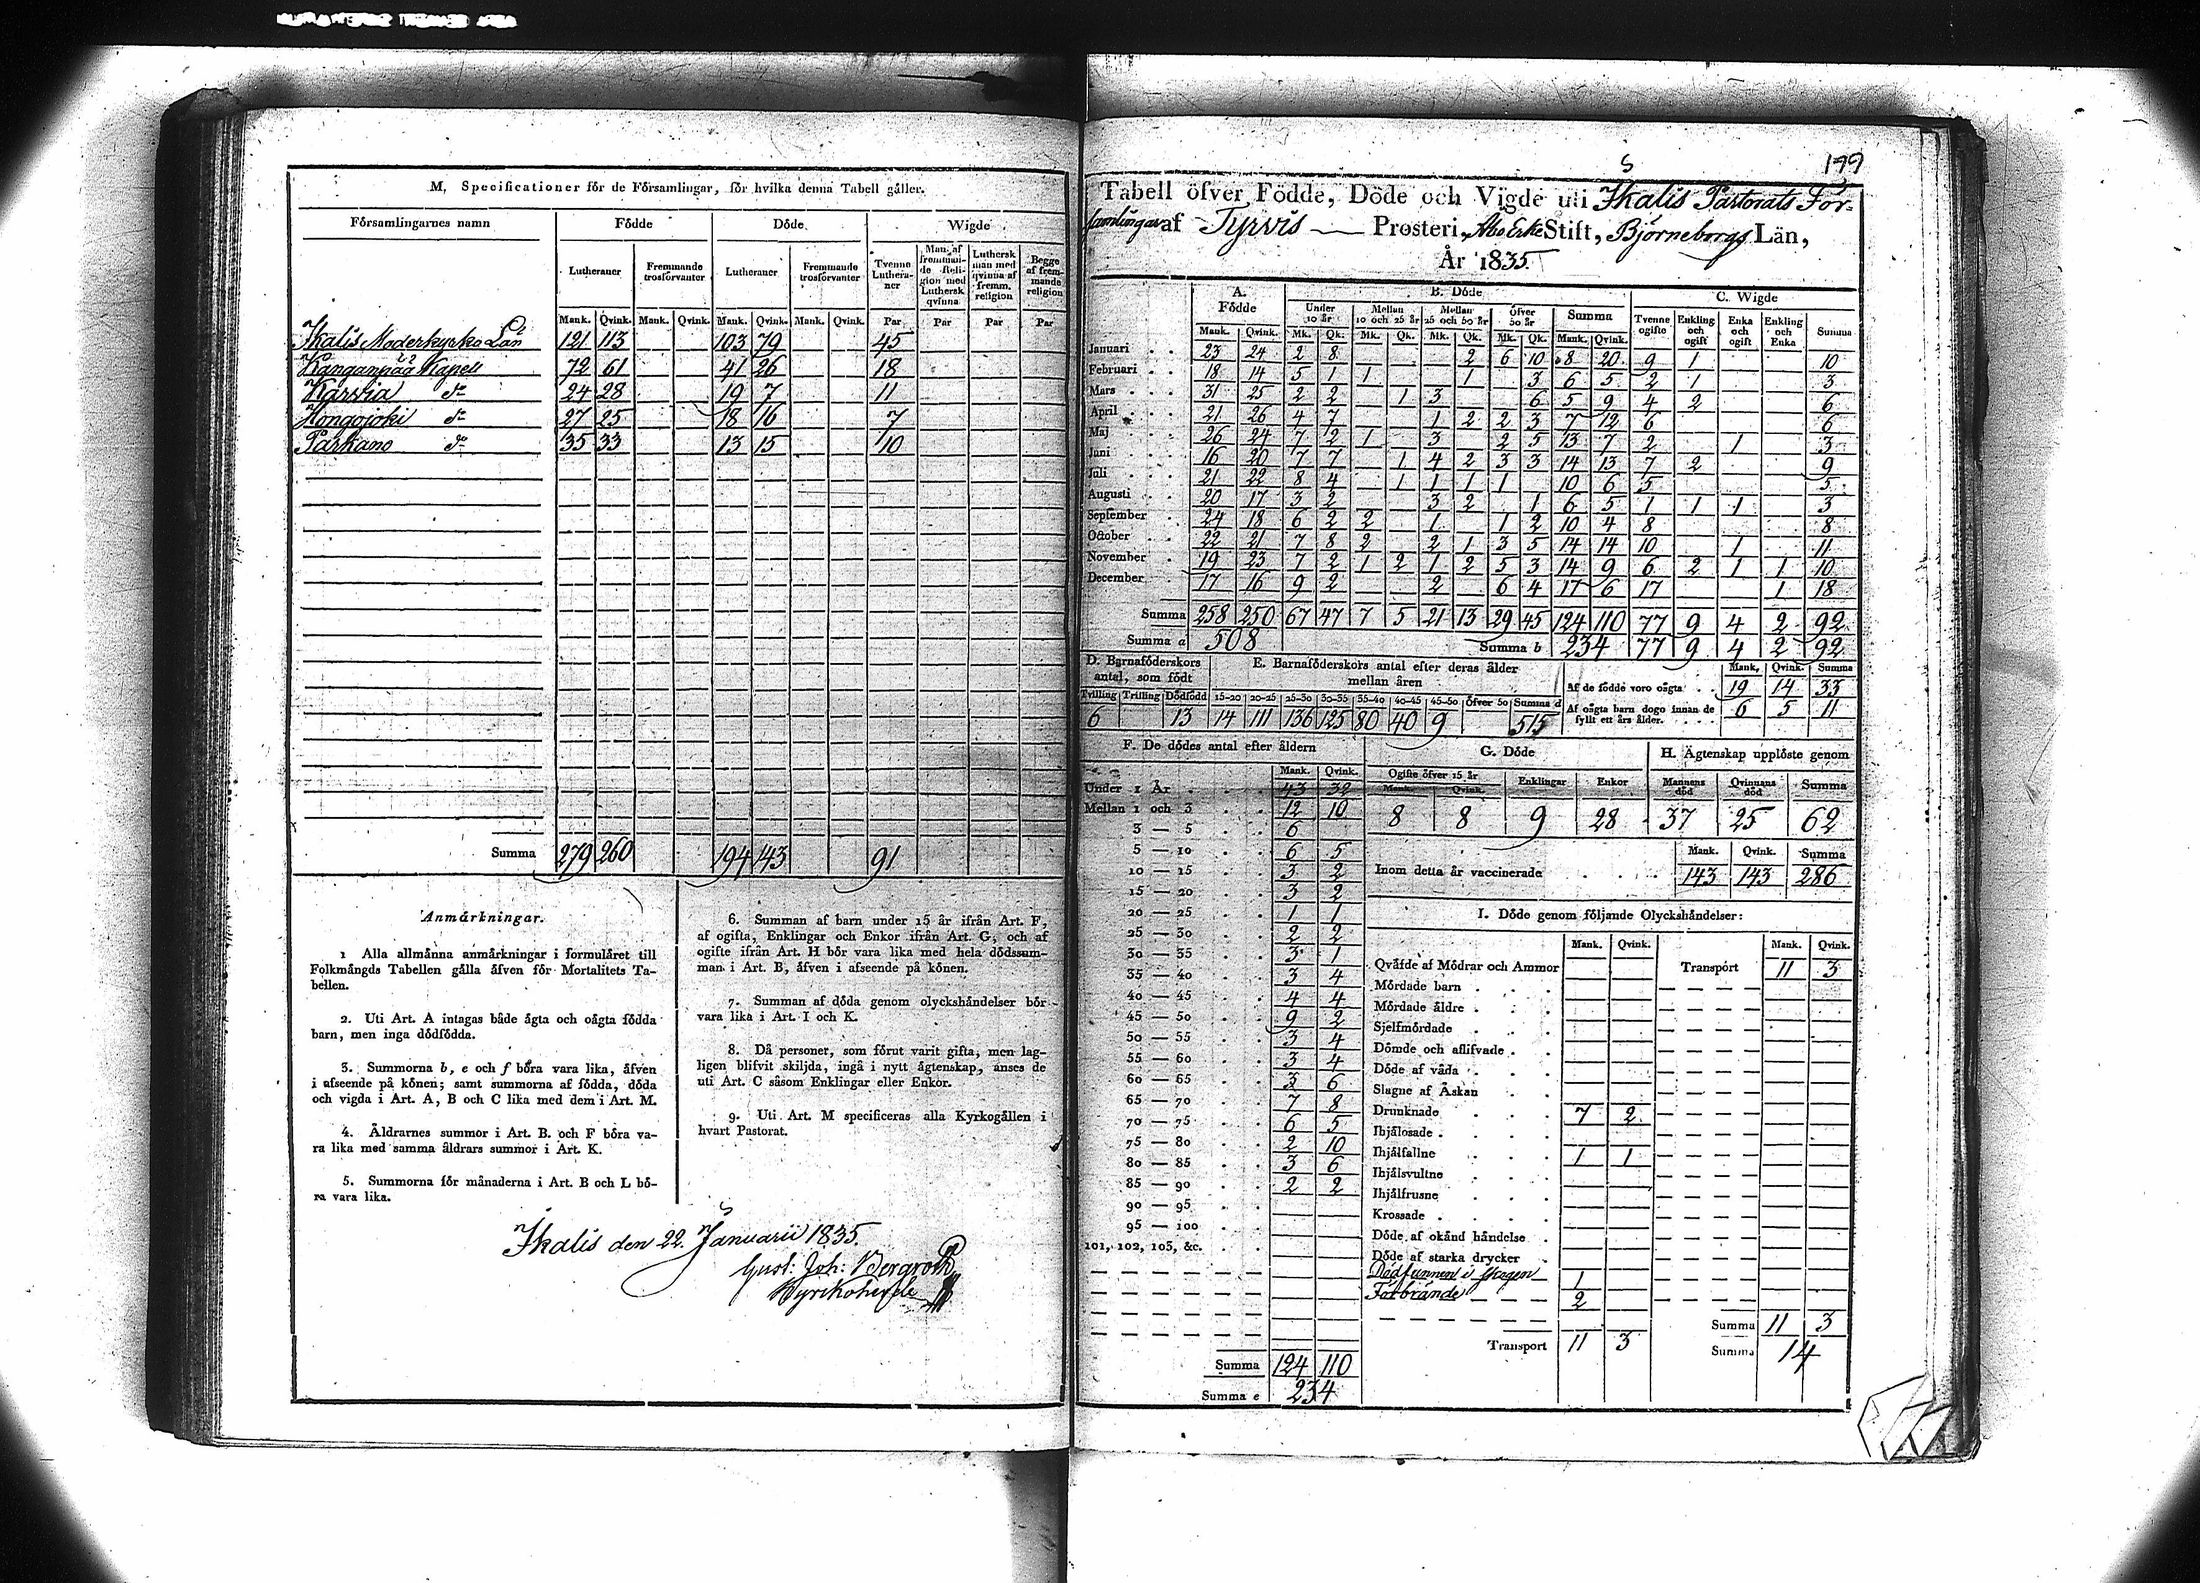 M. Specificationer för de Församlingar, för hvilka denna Tabell gäller.
Församlingarnes namn Födde Döde Wigde
Lutheraner Fremmande trosförvanter Lutheraner Fremmande trosförvanter Tvenne Lutheraner Man af fremmande Religion med Luthersk qvinna Luthersk man med qvinna af fremm. religion Begge af fremmande religion
Mank. Qvink. Mank. Qvink. Mank. Qvink. Mank. Qvink. Par Par Par Par
Ikalis Moderkyrko 121 113 103 79 45
Kanganpää Kapell 72 61 41 26 18
Karvia d:o 24 28 19 7 11
Hongojoki d:o 27 25 18 16 7
Parkano d:o 35 33 13 15 10
Summa 279 260 194 143 91
Anmärkningar.
1 Alla allmänna anmärkningar i formuläret till
Folkmängds Tabellen gälla äfven för Mortalitets Ta-
bellen.
2. Uti Art. A intagas både ägta och oägta födda
barn, men inga dödfödda.
3. Summorna b, e och f böra vara lika, äfven
i afseende på könen; samt summorna af födda, döda
och vigda i Art. A, B och C lika med dem i Art. M.
4. Åldrarnes summor i Art. B. och F böra va-
ra lika med samma åldrars summor i Art. K.
5. Summorna för månaderna i Art. B och L bö-
ra vara lika.
6. Summan af barn under 15 år ifrån Art. F,
af ogifta, Enklingar och Enkor ifrån Art. G, och af
ogifte ifrån Art. H bör vara lika med hela dödssum-
man i Art. B, äfven i afseende på könen.
7. Summan af döda genom olyckshändelser bör
vara lika i Art. I och K.
8. Då personer, som förut varit gifta, men lag-
ligen blifvit skiljda, ingå i nytt ägtenskap, anses de
uti Art. C såsom Enklingar eller Enkor.
9. Uti Art. M specificeras alla Kyrkogällen i
hvart Pastorat.
Ikalis den 22. Januarii 1835.
Gust: Joh: Bergroth
Kyrkoherde
199
Tabell öfver Födde, Döde och Vigde uti Ikalis Pastorats För-
samlingar af Tyrvis Prosteri, Åbo Erke Stift, Björneborgs Län,
År 1835.
A. Födde B. Döde C. Wigde
Under 10 år Mellan 10 och 25 år Mellan 25 och 50 år Öfver 50 år Summa Tvenne ogifte Enkling och ogift Enka och ogift Enkling och Enka Summa
Mank. Qvink. Mk. Qk. Mk. Qk. Mk. Qk. Mk. Qk. Mank. Qvink.
Januari 23 24 2 8 2 6 10 8 20 9 1 10
Februari 18 14 5 1 1 1 3 6 5 2 1 3
Mars 31 25 2 2 1 3 6 5 9 4 2 6
April 21 26 4 7 1 2 2 3 7 12 6 6
Maj 26 24 7 2 1 3 2 5 13 7 2 1 3
Juni 16 20 7 7 1 4 2 3 3 14 13 7 2 9
Juli 21 22 8 4 1 1 1 1 10 6 5 5
Augusti 20 17 3 2 3 2 1 6 5 1 1 1 3
September 24 18 6 2 2 1 1 2 10 4 8 8
October 22 21 7 8 2 2 1 3 5 14 14 10 1 11
November 19 23 7 2 1 2 1 2 5 3 14 9 6 2 1 1 10
December 17 16 9 2 2 6 4 17 6 17 1 18
Summa 258 250 67 47 7 5 21 13 29 45 124 110 77 9 4 2 92
Summa a 508 Summa b 234 77 9 4 2 92
D. Barnaföderskors antal, som födt
Tvilling Trilling Dödfödd
6 13
E. Barnaföderskors antal efter deras ålder mellan åren
15-20 20-25 25-30 30-35 35-40 40-45 45-50 öfver 50 Summa d
14 111 136 125 80 40 9 515
Mank. Qvink. Summa
Af de födde voro oägta 19 14 33
Af oägta barn dogo innan de fyllt ett års ålder. 6 5 11
F. De dödes antal efter åldern
Mank. Qvink.
Under 1 År 43 32
Mellan 1 och 3 12 10
3 — 5 6
5 — 10 6 5
10 — 15 3 2
15 — 20 3 2
20 — 25 1 1
25 — 30 2 2
30 — 35 3 1
35 — 40 3 4
40 — 45 4 4
45 — 50 9 2
50 — 55 3 4
55 — 60 3 4
60 — 65 3 6
65 — 70 7 8
70 — 75 6 5
75 — 80 2 10
80 — 85 3 6
85 — 90 2 2
90 — 95
95 — 100
101, 102, 103, &c.
Summa 124 110
Summa e 234
G. Döde
Ogifte öfver 15 år Enklingar Enkor
Mank. Qvink.
8 8 9 28
H. Ägtenskap upplöste genom
Mannens död Qvinnans död Summa
37 25 62
Mank. Qvink. Summa
Inom detta år vaccinerade 143 143 286
I. Döde genom följande Olyckshändelser:
Mank. Qvink. Mank. Qvink.
Qväfde af Mödrar och Ammor Transport 11 3
Mördade barn
Mördade äldre
Sjelfmördade
Dömde och aflifvade
Döde af våda
Slagne af Åskan
Drunknade 7 2
Ihjälosade
Ihjälfallne 1 1
Ihjälsvultne
Ihjälfrusne
Krossade
Döde af okänd händelse
Döde af starka drycker
Dödfunnen i skogen 1
Förbrände 2
Summa 11 3
Transport 11 3 Summa 14